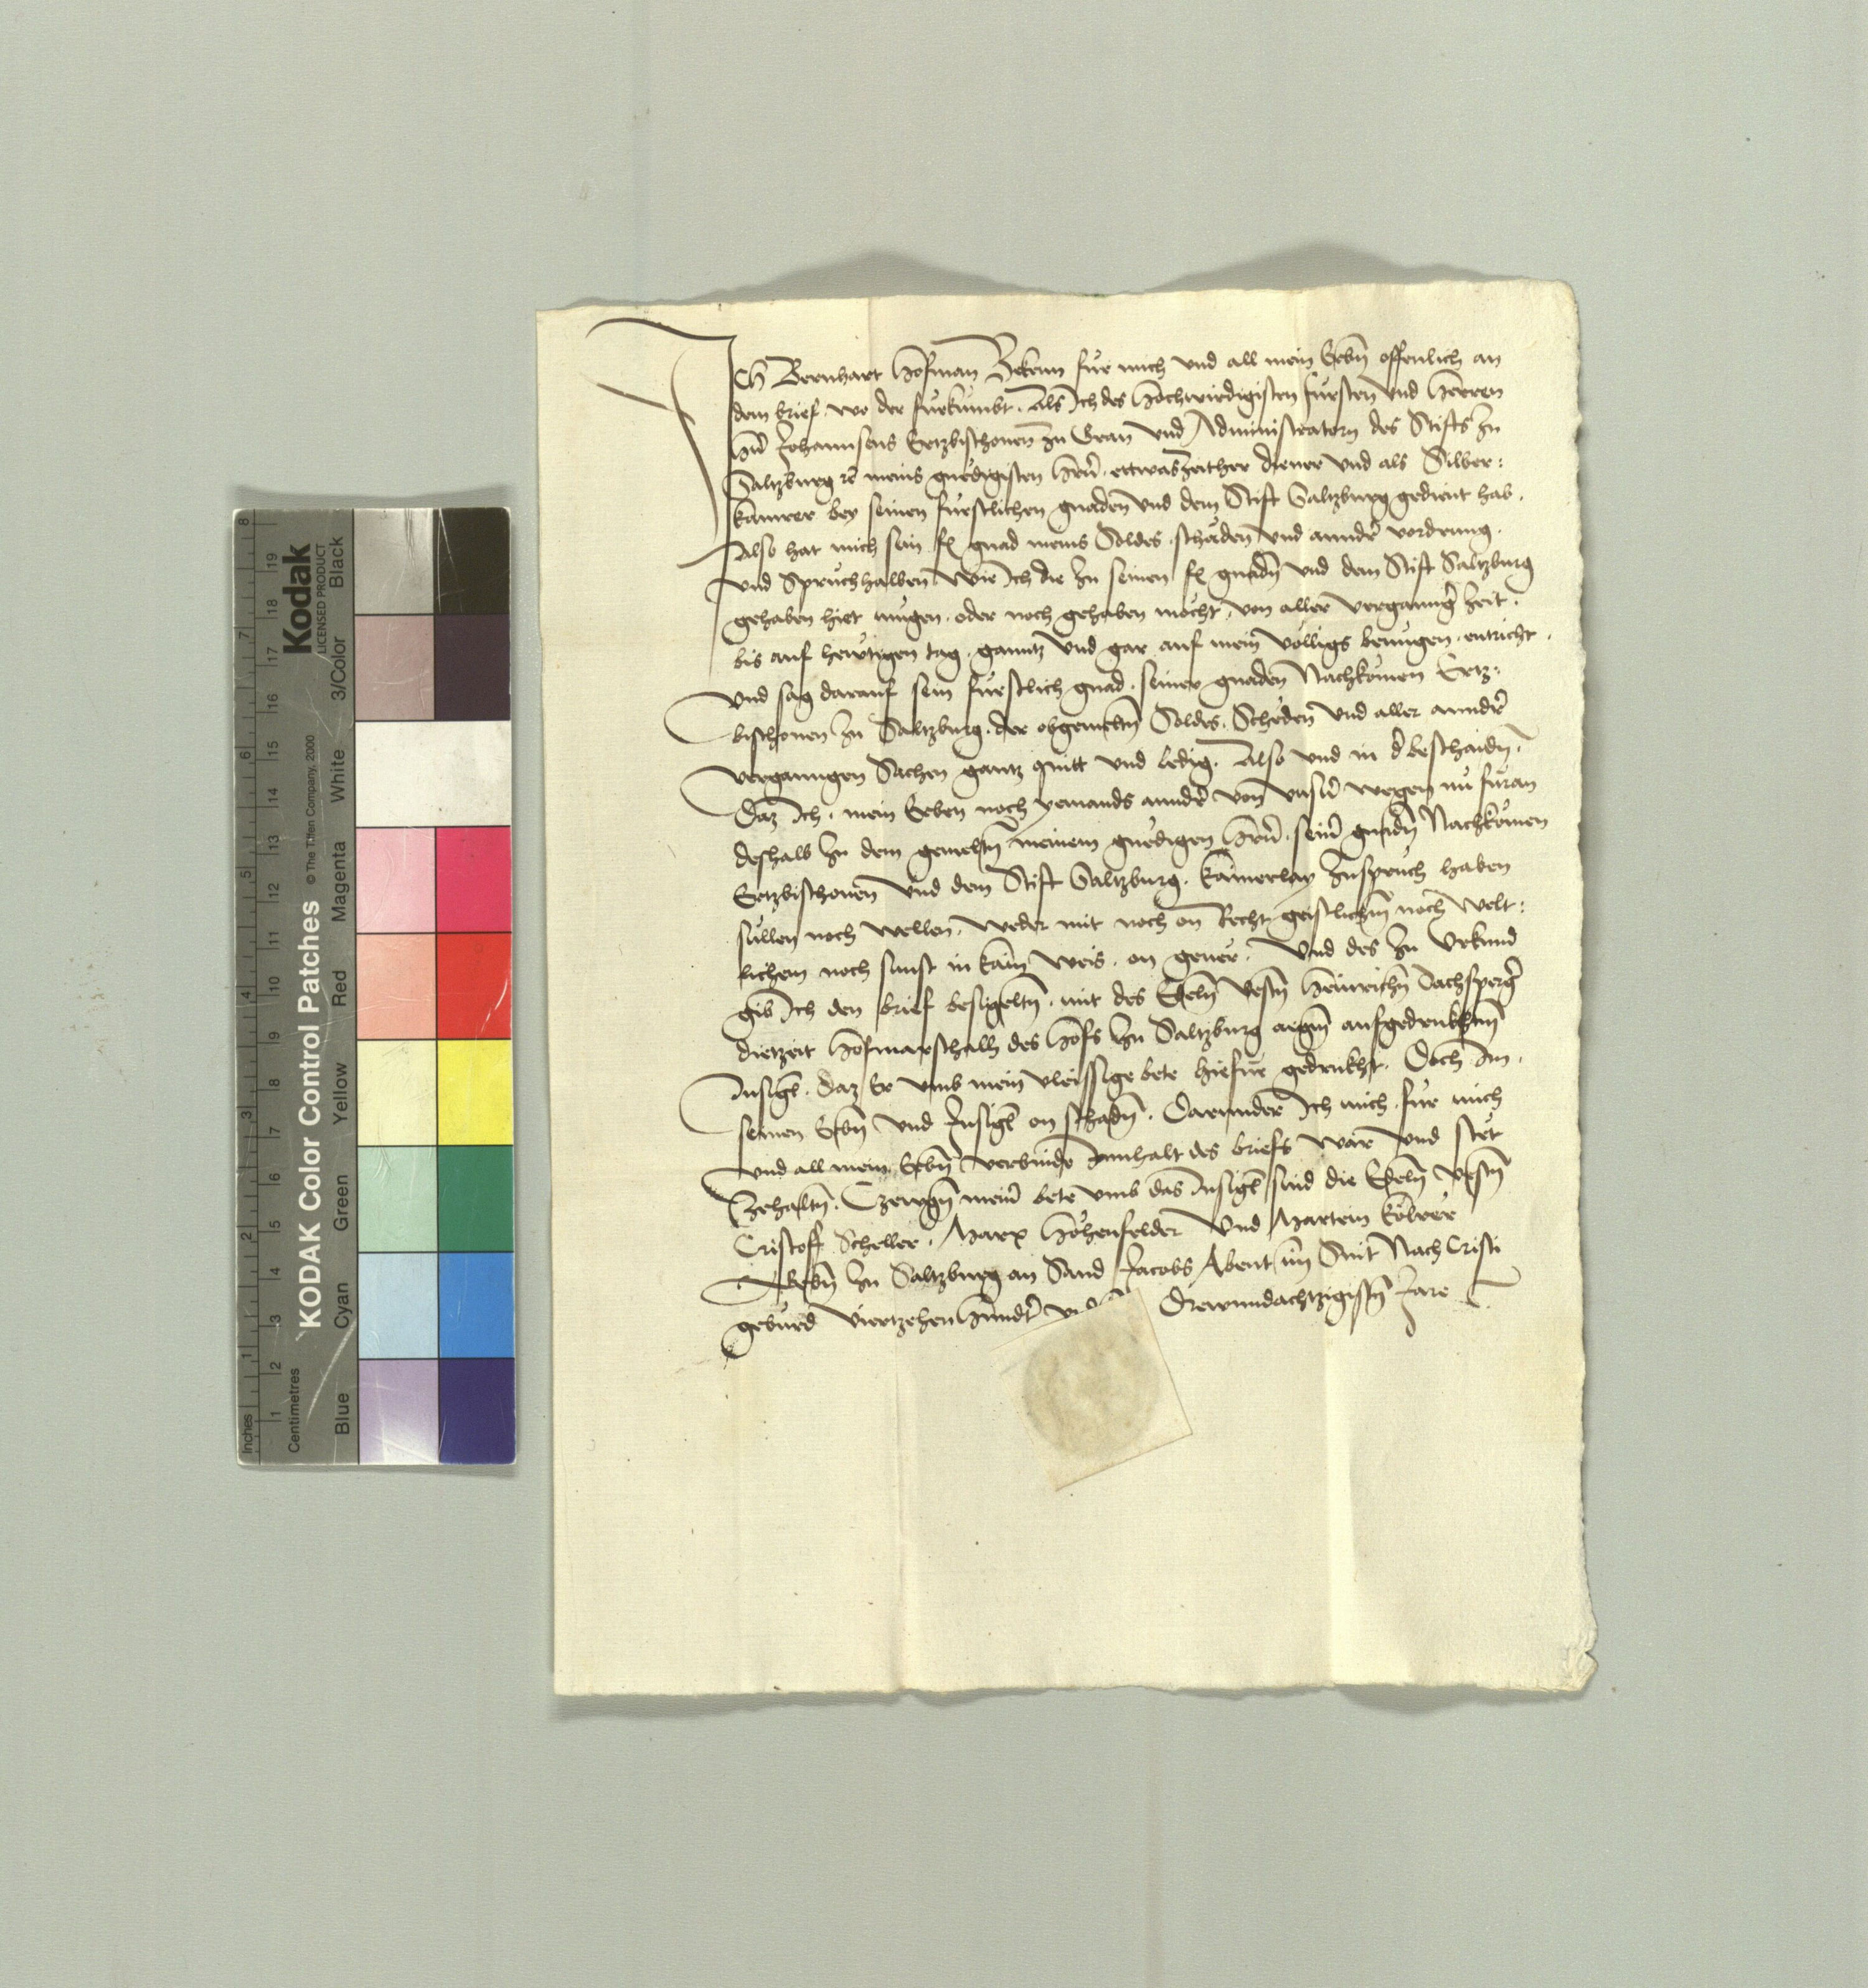 Ich Bernhart Hofman Bekenn für mich und all mein Erbn̄ offenlich an
dem brief, wo der fürkumbt. Als Ich des Hochwirdigisten fürsten und Herren
Hn̄ Johannsens Ertzbischouen zu Gran und Administratorn des Stiffts zu
Saltzburg rc̄ meins gnedigisten Hrn̄. ettwas zeither diener und als Silber:
kamrer bey seinen fürstlichen gnaden und dem Stift Saltzburg gedient hab.
Also hat mich sein fl gnad meins Soldes. schäden und annder vordrung.
und Spruch halben wie Ich die zu seinen fl gnadn̄ und dem Stift Saltzburg
gehaben hiet mugen. oder noch gehaben möcht, von aller vergannger zeit.
bis auf hewtigen tag. ganntz und gar auf mein völligs benügen. entricht.
Und sag darauf sein fürstlich gnad. seiner gnaden Nachkomen Ertz:
bischouen zu Saltzburg. der obgemeltn̄ Soldes. Schëden und aller annder
vergangen Sachen gantz quitt und ledig. Also und in d' beschaidn̄.
Daz Ich. mein Erben noch yemands annder von unsern̄ wegen nü füran
deshalb zu dem gemeltn̄ meinem gnedigen Hrn̄. sein̄ gnadn̄ Nachkomen
Ertzbischouen und dem Stift Saltzburg. kainerlay Zuspruch haben
sullen noch wellen. weder mit noch on Recht geistlichm̄ noch welt:
lichem noch sunst in kain̄ weis. on geuer. Und des zu Urkund
gib Ich den brief besigeltn̄. mit des Edeln̄ Vestn̄ Heinrichn̄ Dachsperger
dietzeit Hofmarschalh des Hofs zu Saltzburg aigm̄ aufgedrukhtm̄
Insigl. Daz Er umb mein vleissige bete hiefür gedrukht. Doch Im.
seinen Erbn̄ und Insigl on schadn̄. Darunnder Ich mich. für mich
und all mein Erbn̄ verbinde Innhalt des briefs war und stet
Zehaltn̄. Czewgn̄ mein̄ bete umb das Insigl sind die Edeln̄ Vestn̄
Cristoff Scheller. Marx Hohenfelder und Martein Kölrer
Gebn̄ zu Saltzburg an Sand Jacobs Abent im̄ Snit Nach Cristi
geburd Viertzehenhundt' Drewundachtzigistn̄ Jare
Kodak
LICENSED PRODUCT
KODAK Color Control Patches
© The Tiffen Company, 2000
Centimetres
Inches
Blue Cyan Green Yellow Red Magenta White 3/Color Black
1 2 3 4 5 6 7 8 9 10 11 12 13 14 15 16 17 18 19
1 2 3 4 5 6 7 8